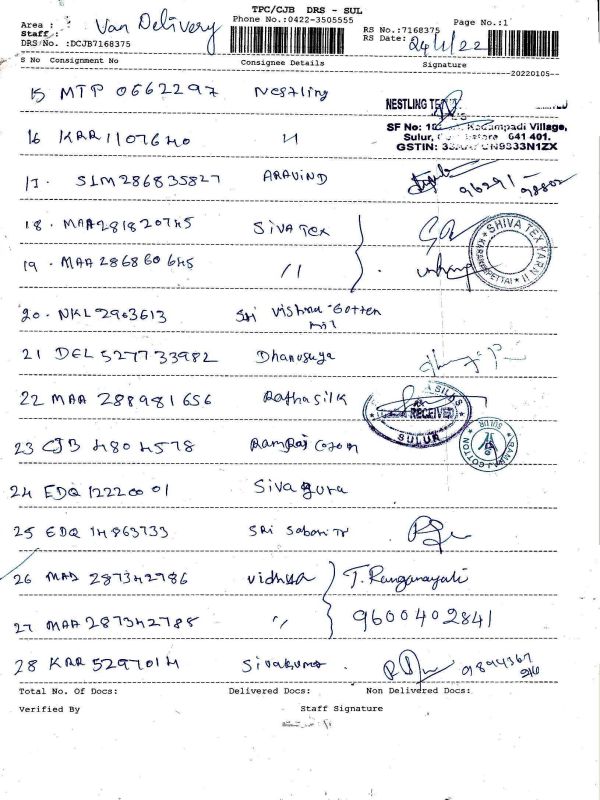 TPC/CJB DRS - SUL
Area : Van Delivery Phone No.:0422-3505555 Page No.:1
Staff : RS No.:7168375
DRS/No. :DCJB7168375 RS Date: 24/1/22
S No Consignment No Consignee Details Signature
20220105
15 MTP 0662297 Nestling
NESTLING
SF No: Kadampadi Village,
Sulur, 641 401.
GSTIN:
16 KRR 1107640 "
17. SLM 286835827 ARAVIND 96291-
18. MAA 281820745 SIVA Tex
SHIVA TEX YARN
KARANAMPETTAI II
19. MAA 286860645 "
20. NKL 2903613 Sri Vishnu Cotten mil
21 DEL 527733982 Dhanusuya
22 MAA 288981656 Rathasilk
RECEIVED
SULUR
23 CJB 4804578 Ramraj Coton
RAMRAJ COTTON
SULUR
24 EDQ 12220001 Sivagura
25 EDQ 14863733 SRI Sabari Tr
26 MAA 287342786 vidhya T. Ranganayaki
27 MAA 287342788 " 9600402841
28 KRR 5297014 Sivakumar 9894367
Total No. Of Docs: Delivered Docs: Non Delivered Docs:
Verified By Staff Signature